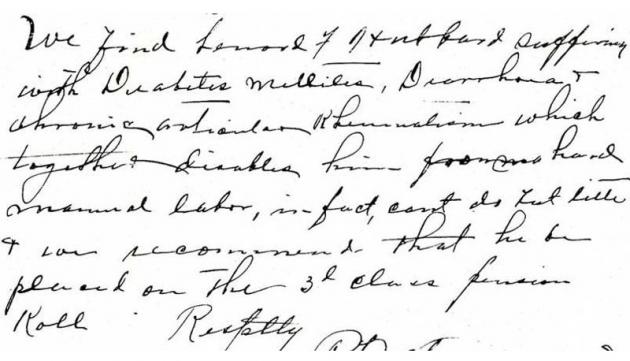 We find Lenord F Hubbard suffering
with Diabetis Mellites, Diarrhoea &
chronic articular Rheumatism which
together disables him from hard
manual labor, in fact, cant do but little
& we recommend that he be
placed on the 3d class pension
Roll Resptly